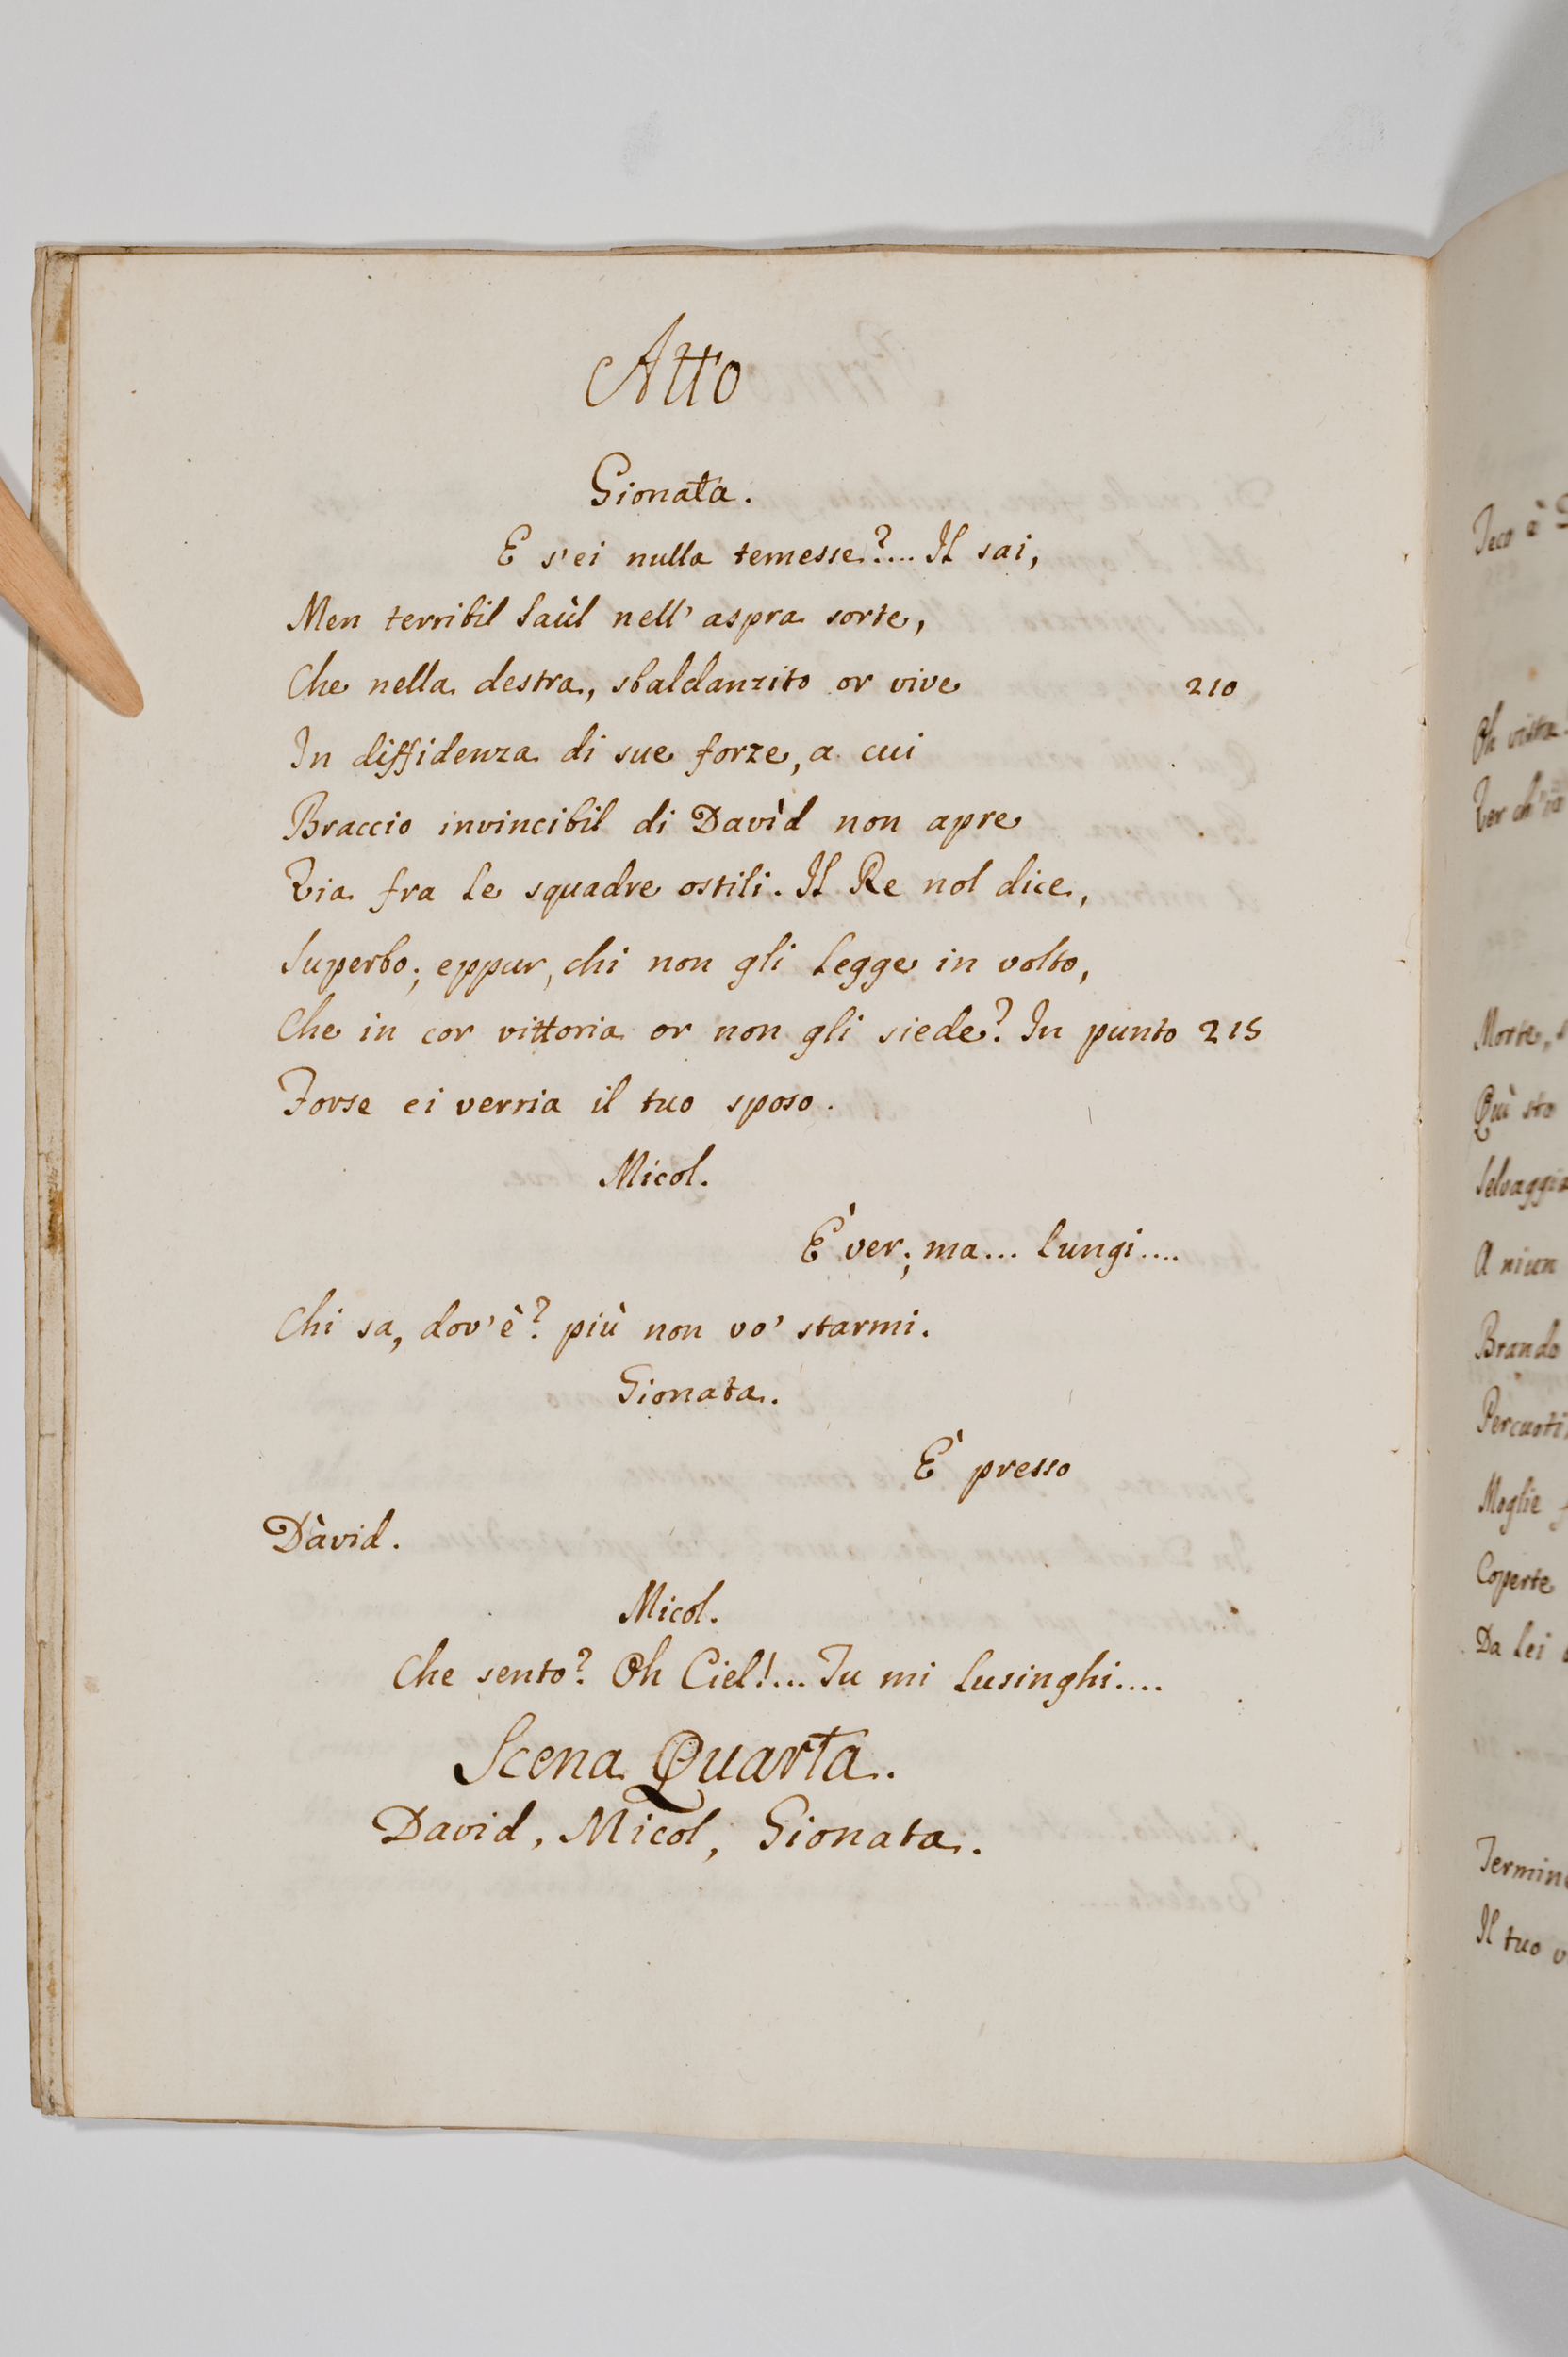 Atto
Gionata.
E s'ei nulla temesse?.... Il sai,
Men terribil Saùl nell' aspra sorte,
Che nella destra, sbaldanzito or vive 210
In diffidenza di sue forze, a cui
Braccio invincibil di Davìd non apre
Via fra le squadre ostili. Il Re nol dice,
Superbo; eppur, chi non gli legge in volto,
Che in cor vittoria or non gli siede? In punto 215
Forse ei verria il tuo sposo.
Micol.
È ver; ma... lungi....
Chi sa, dov'è? più non vo' starmi.
Gionata.
È presso
Dàvid.
Micol.
Che sento? Oh Ciel!... Tu mi lusinghi....
Scena Quarta.
David, Micol, Gionata.
Teco è
Oh vista
Per ch'io
Morte,
Quì sto
Selvaggia
A niun
Brando
Moglie
Coperte
Da lei
Il tuo